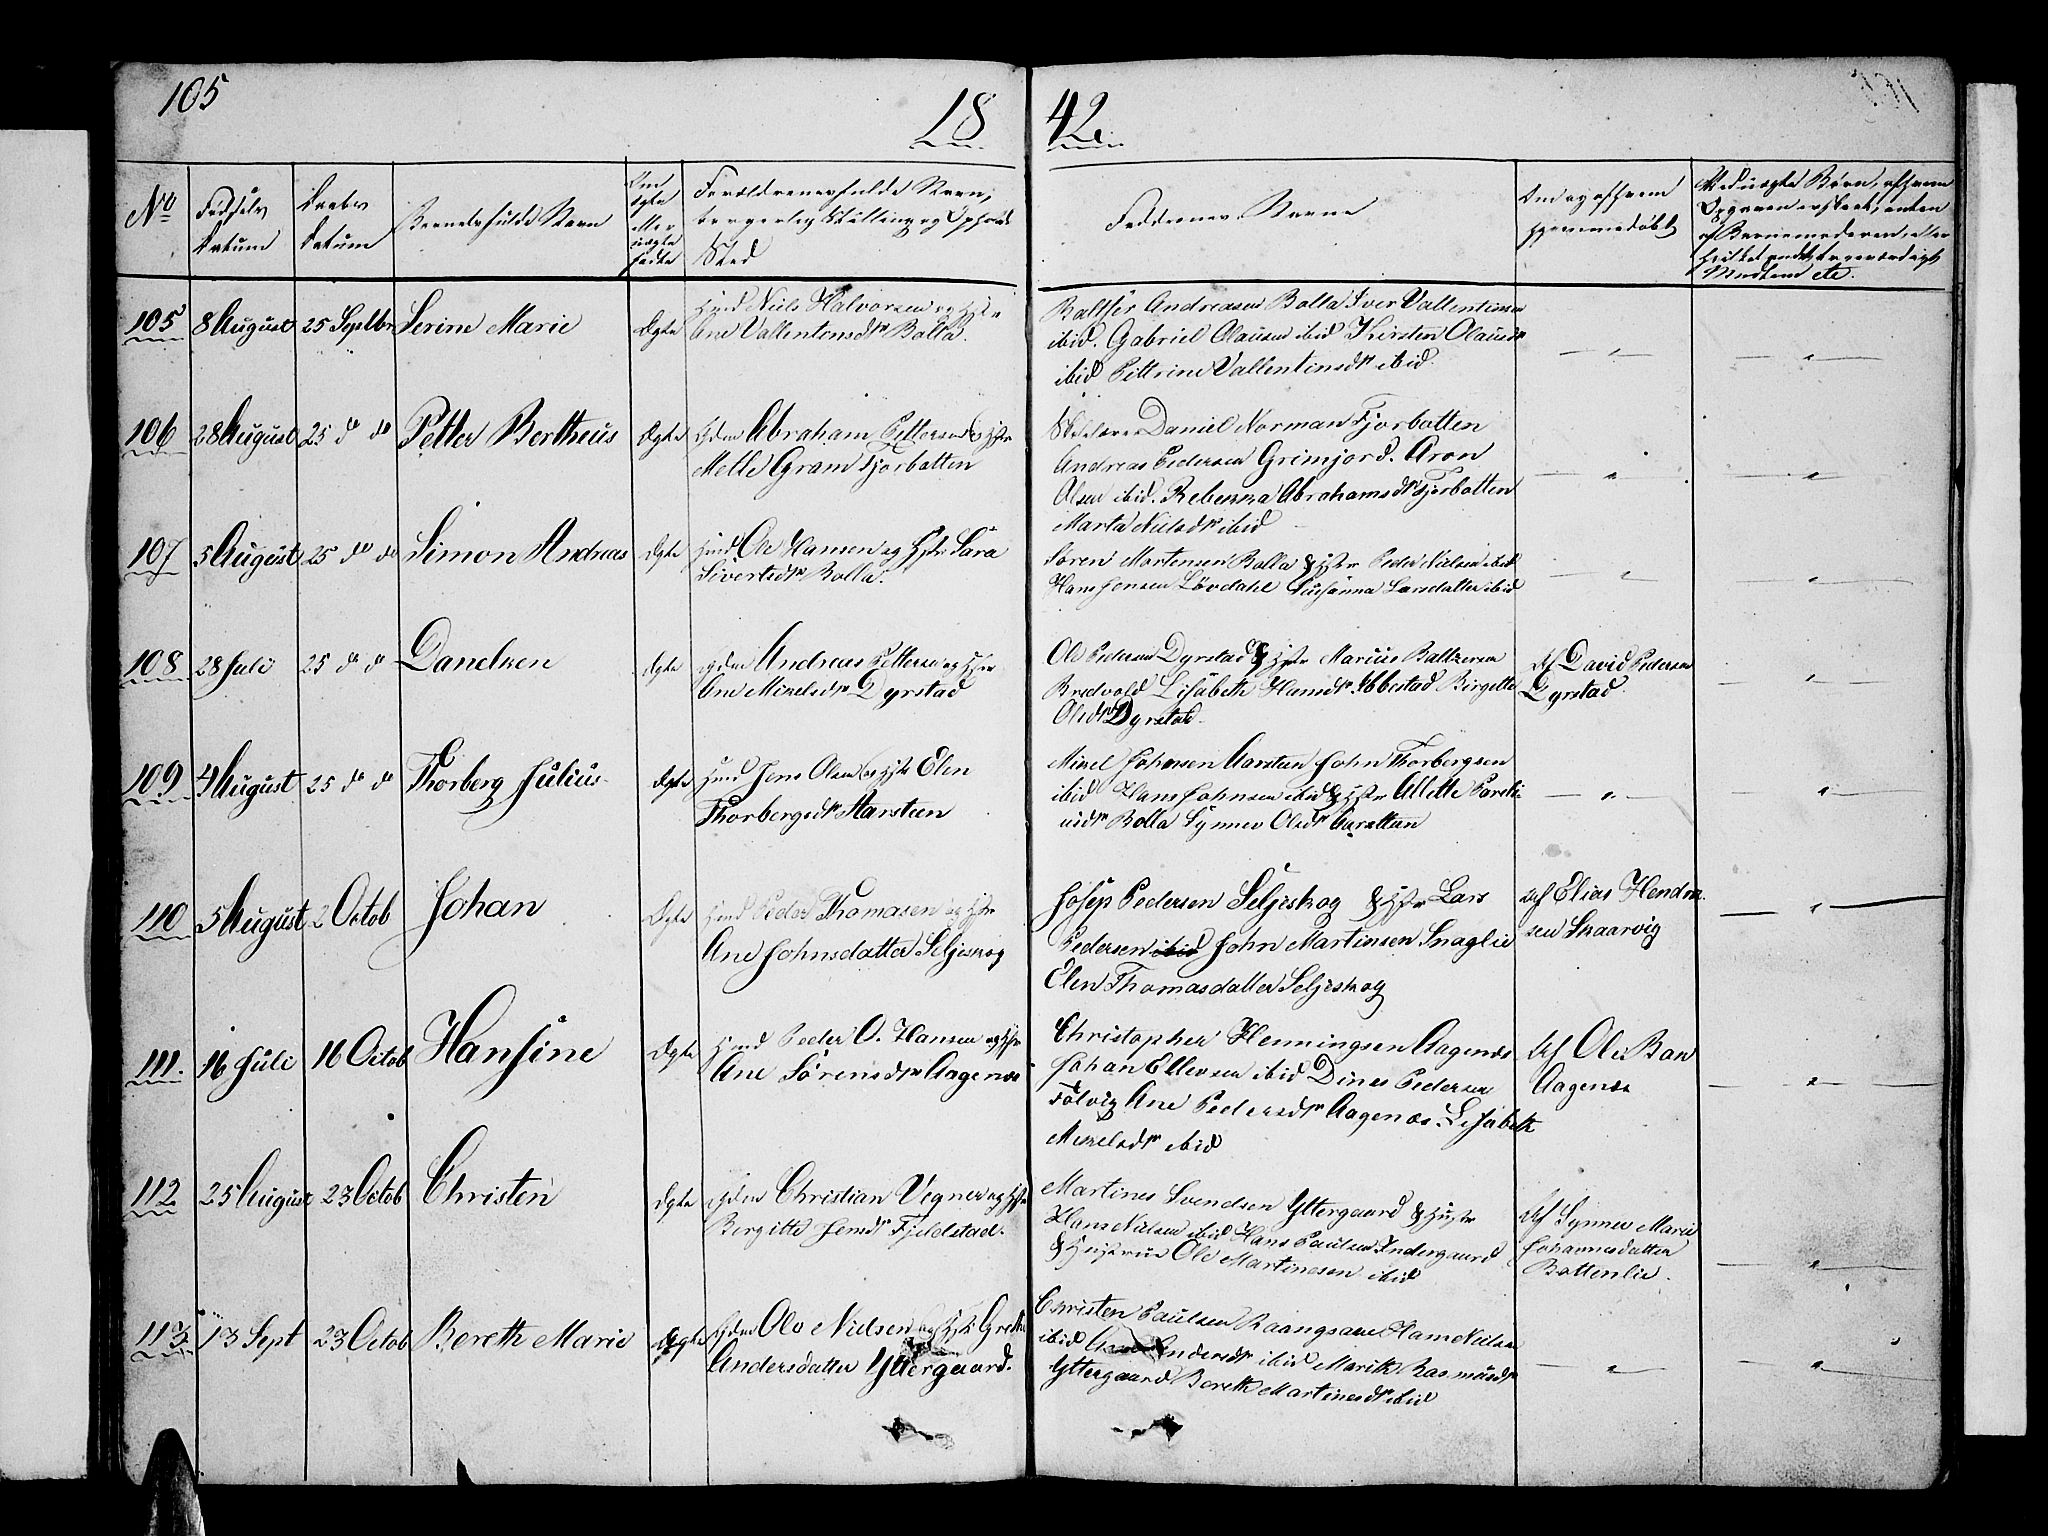 105
18 42
No
Fødsels Datum
Daabs Datum
Barnets fulde Navn
Om ægte eller uægte fødte
Forældrenes fulde Navn, borgerlig Stilling og Opholds Sted
Faddernes Navne
Om og af hvem hjemmedøbt
Ved uægte Børn, af hvem Opgaven er skeet, enten af Barnemoderen, eller hvilket andet troværdigt Medhem etc.
105 8 August 25 Septbr Serine Marie Ægte Huusmd Niels Halvorsen og Hstr
Ane Vallentinsdr Rolla.
Baltser Andreasen Rolla Iver Vallentinsen
ibid. Gabriel Olausen ibid Kirsten Olausdr
ibid Pettrine Vallentinsdr ibid.
106 28 August 25 do do Petter Bertheus Ægte Gdm Abraham Pettersen & Hstr
Melle Gram Fjorbotten
Daniel Norman Fjorbotten
Andreas Pedersen Grimjord. Aron
Olsen ibid. Rebekka Abrahamsdr Fjorbotten
Marta Nielsdr ibid
107 5 August 25 do do Simon Andreas Ægte Huusmd Ole Hansen og Hstr Sara
Sivertsdr Rolla.
Søren Mortensen Rolla & Hstr Peder Nielsen ibid
Hans Jensen Løvdahl Susanna Larsdatter ibid
108 28 Juli 25 do d Danelsen Ægte Gdm Andreas Pettersen og Hstr
Ane Mikelsdr Dyrstad
Ole Pedersen Dyrstad & Hstr Marius Baltzersen
Bredvold Lisabeth Hansdr Ibbestad Birgitte
Olsdr Dyrstad.
Af David Pedersen
Dyrstad.
109 4 August 25 do d Thorberg Julius Ægte Huusmd Jens Olsen og Hstr Elen
Thorbergsdr Aarsteen
Mikel Johnsen Aarsteen John Thorbergsen
ibid Hans Johnsen ibid & Hstr Allette Pareli
usdr Rolla Synnev Olsdr
110 5 August 2 Octob Johan Ægte Huusmd Peder Thomasen og Hstr
Ane Johnsdatter Seljeskog
Josep Pedersen Seljeskog & Hstr Lars
Pedersen ibid John Martinsen Snaglie
Elen Thomasdatter Seljeskog
Af Elias Hendrik
sen Skaarvig
111. 16 Juli 16 Octob Hansine Ægte Huusmd Peder O. Hansen og Hstr
Ane Sørensdr Aagenæs
Christopher Henningsen Aagenæs
Johan Ellevsen ibid Dines Pedersen
Følvig Ane Pedersdr Aagenæs. Lisabeth
Mikelsdr ibid
Af Ole Ban
Aagenæs
112 25 August 23 Octob Christen Ægte Gdm Christian Vegner og Hstr
Bergitte Jensdr Fjeldstad.
Martines Svendsen Yttergaard & Hustr
Hans Nielsen ibid Hans Paulsen Indergaard
& Hustrue Ole Martinesen ibid
Af Synnev Marie
Johannesdatter
Bottenlie.
113. 13 Sept 23 Octob Bereth Marie Ægte Gdm Ole Nielsen og Hstr Grethe
Andersdatter Yttergaard.
Christen Paulsen Raangsare Hans Nielsen
ibid Ane Andersdr ibid Marith Rasmusdr
Yttergaard Bereth Martinesdr ibid